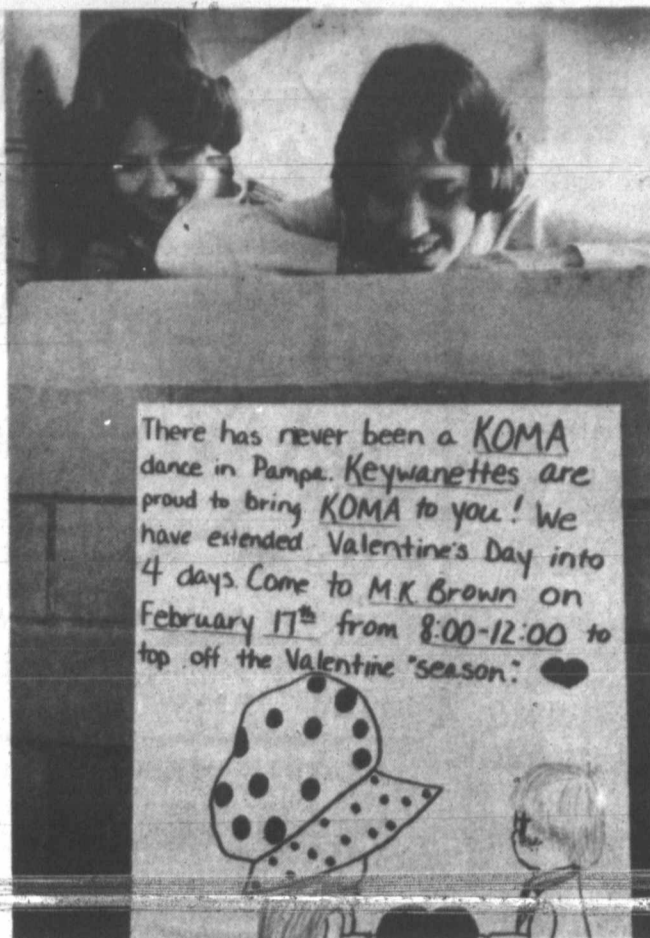 There has never been a KOMA
dance in Pampa. Keywanettes are
proud to bring KOMA to you! We
have extended Valentine's Day into
4 days. Come to M.K. Brown on
February 17th from 8:00-12:00 to
top off the Valentine "season".